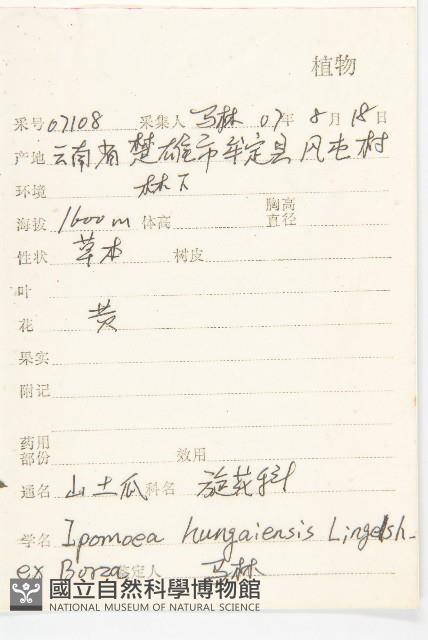 植物
采号 07108 采集人 马林 07年 8月 18日
产地 云南省楚雄市牟定县风屯村
环境 林下
海拔 1600m 体高 胸高直径
性状 草本 树皮
叶
花 黄
果实
附记
药用部份 效用
通名 山土瓜 科名 旋花科
学名 Ipomoea hungaiensis Lingelsh.
ex Borza 鉴定人 马林
國立自然科學博物館
NATIONAL MUSEUM OF NATURAL SCIENCE